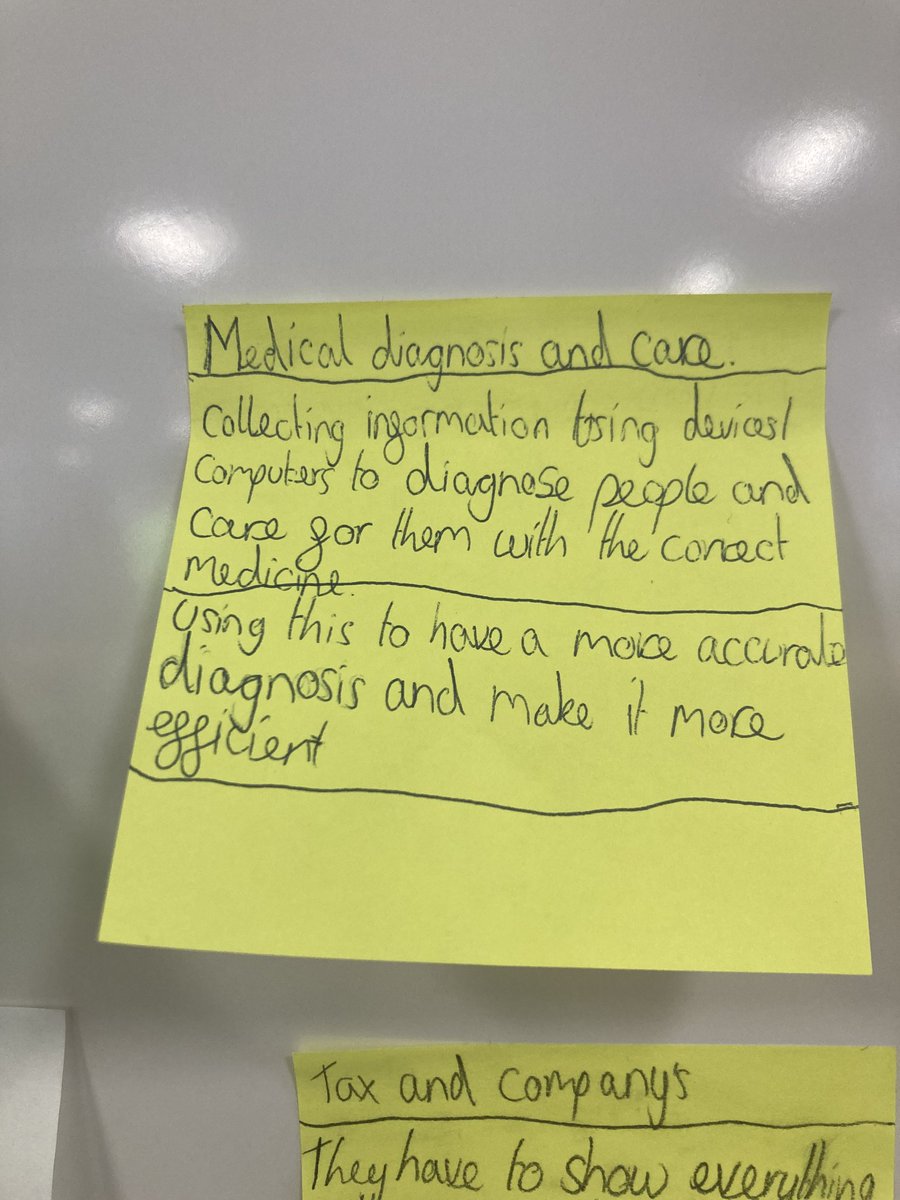 Medical diagnosis and care.
Collecting information using devices/
Computers to diagnose people and
care for them with the correct
medicine.
Using this to have a more accurate
diagnosis and make it more
efficient
Tax and company's
They have to show everything